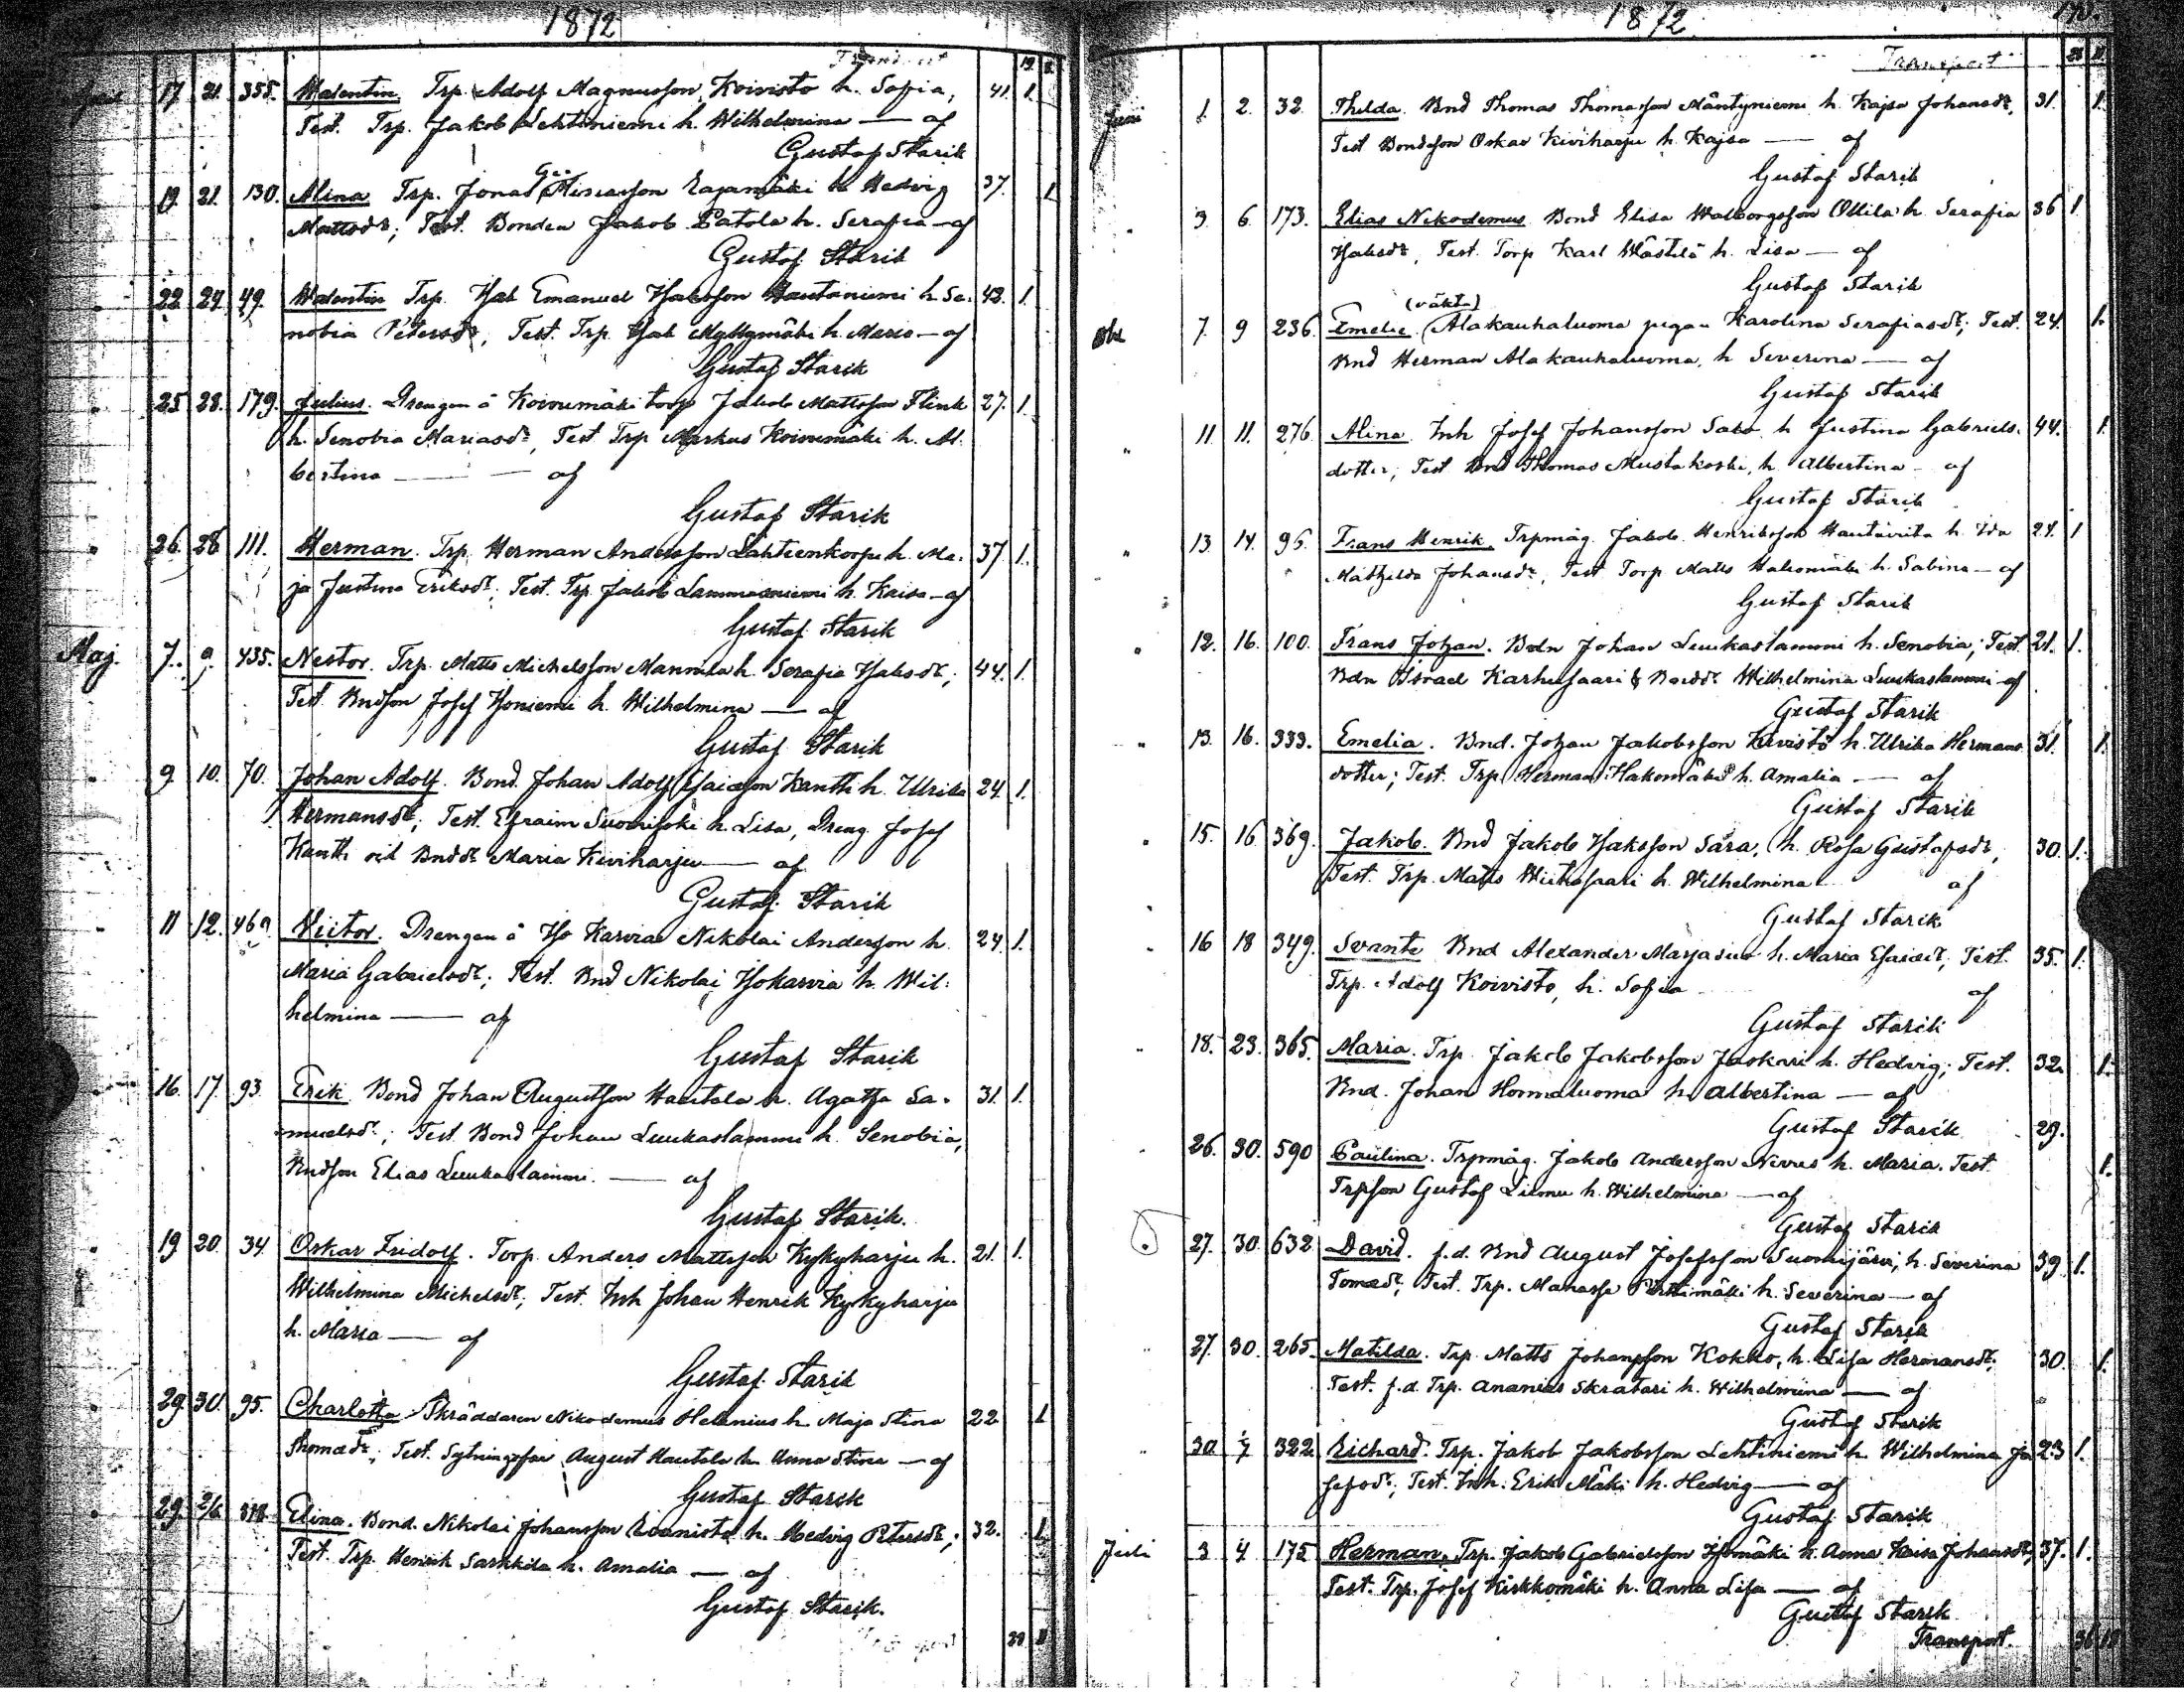 1872
Transport 19. 8.
April 17. 21. 355. Walentin. Trp. Adolf Magnusson Koivisto h. Sofia, 41. 1.
Test. Trp. Jakob Lehtiniemi h. Wilhelmina — af
Gustaf Starik
19. 21. 130. Alina Trp. Jonas Rajamäki h. Hedvig 37. 1
Mattsdr; Test. Bonden Jakob Patola h. Serafia — af
Gustaf Starik
22 27. 49. Walentin Trp. Isak Emanuel Isaksson Hautaniemi h. Se- 43. 1.
nobia Petersdr, Test. Trp. Isak Myllymäki h. Maria — af
Gustaf Starik
25 28. 179. Julius. Drengen å Koivumäki torp Jakob Mattsson Flink 27. 1.
h. Senobia Mariasdr, Test. Trp Markus Koivumäki h. Al-
bertina — af
Gustaf Starik
26. 28 111. Herman. Trp. Herman Andersson Lahtienkorpi h. Ma- 37 1.
ja Justina Eriksdr; Test. Trp. Jakob Lamminniemi h. Kaisa — af
Gustaf Starik
Maj. 7. 9. 435. Nestor. Trp. Matts Michelsson Mannila h. Serafia Isaksdr; 44. 1.
Test. Bndson Josef Isoniemi h. Wilhelmina — af
Gustaf Starik
9 10. 70. Johan Adolf. Bond. Johan Adolf Esaiasson Kantti h. Ulrika 24. 1.
Hermansdr; Test. Efraim Suomijoki h. Lisa, Dreng. Josef
Kantti och Bnddr Maria Kiviharju — af
Gustaf Starik
11 12. 469. Victor. Drengen å Iso Karvia Nikolai Andersson h. 24. 1.
Maria Gabrielsdr; Test. Bnd Nikolai Isokarvia h. Wil-
helmina — af
Gustaf Starik
16. 17. 93 Erik. Bond Johan Augustsson Hautala h. Agatha Sa- 31. 1.
muelsdr; Test. Bond Johan Luukaslammi h. Senobia,
Bndson Elias Luukaslammi. — af
Gustaf Starik.
19 20. 34. Oskar Fridolf. Torp. Anders Mattsson Kykyharju h. 21. 1.
Wilhelmina Michelsdr; Test. Inh Johan Henrik Kykyharju
h. Maria — af
Gustaf Starik
29. 30. 95. Charlotta Skräddaren Nikodemus Helenius h. Maja Stina 22 1
Thomasdr; Test. August Hautala h. Anna Stina — af
Gustaf Starik
29. 2/6 Elina. Bond. Nikolai Johansson h. Hedvig Petersdr; 32. 1.
Test. Trp. Henrik Sarkkila h. Amalia — af
Gustaf Starik.
Transport 28 11
1872.
Transport 28 11.
Juni 1. 2. 32. Thilda. Bnd Thomas Thomasson Mäntyniemi h. Kajsa Johansdr, 31. 1.
Test Bondeson Oskar Kiviharju h. Kajsa — af
Gustaf Starik
3. 6. 173. Elias Nikodemus. Bond Elisa Walborgsson Ollila h. Serafia 36 1.
Isaksdr, Test. Torp Karl Wästilä h. Lisa — af
Gustaf Starik
(oäkta)
7. 9 236. Emelie. Alakauhaluoma pigan Karolina Serafiasdr; Test. 24. 1.
Bnd Herman Alakauhaluoma, h. Severina — af
Gustaf Starik
11. 11. 276. Alina. Inh Josef Johansson Salo h. Justina Gabriels- 44. 1.
dotter, Test Bnd Thomas Mustakoski, h. Albertina — af
Gustaf Starik
13. 14. 96. Frans Henrik. Trpmåg. Jakob Henriksson Hautaviita h. Ida 24. 1
Mathilda Johansdr, Test. Torp Matts Hakomäki h. Sabina — af
Gustaf Starik
12. 16. 100. Frans Johan. Bdn Johan Luukaslammi h. Senobia; Test. 21. 1.
Bdn Israel Karhusaari & Bnddr Wilhelmina Luukaslammi — af
Gustaf Starik
13. 16. 333. Emelia. Bnd. Johan Jakobsson Kivistö h. Ulrika Hermans- 31. 1.
dotter; Test. Trp. Herman Hakomäki h. Amalia — af
Gustaf Starik
15. 16 369. Jakob. Bnd Jakob Isaksson Sara, h. Rosa Gustafsdr, 30. 1.
Test. Trp. Matts Wiitasaari h. Wilhelmina af
Gustaf Starik
16 18 349. Svante Bnd Alexander h. Maria Esaiedr, Test. 35. 1.
Trp. Adolf Koivisto, h. Sofia — af
Gustaf Starik
18. 23. 365. Maria. Trp. Jakob Jakobsson Jaskari h. Hedvig; Test. 32. 1.
Bnd. Johan Hormaluoma h. Albertina — af
Gustaf Starik 29.
26. 30. 590 Paulina. Trpmåg. Jakob Andersson Nevus h. Maria. Test. 1.
Trpson Gustaf Luomu h. Wilhelmina — af
Gustaf Starik
27. 30. 632 David. f.d. Bnd August Josefsson Suomijärvi, h. Severina 39. 1.
Tomasdr; Test. Trp. Manasse Perttimäki h. Severina — af
Gustaf Starik
27. 30. 265. Matilda. Trp. Matts Johansson Kokko, h. Lisa Hermansdr; 30. 1.
Test. f.d. Trp. Ananias Skratari h. Wilhelmina — af
Gustaf Starik
30. 7 322. Richard. Trp. Jakob Jakobsson Lehtiniemi h. Wilhelmina Jo 23 1.
sefsdr; Test. Inh. Erik Mäki h. Hedvig — af
Gustaf Starik
Juli 3 4 175 Herman. Trp. Jakob Gabrielsson Isomäki h. Anna Kaisa Johansdr; 37. 1.
Test. Trp. Josef Kirkkomäki h. Anna Lisa — af
Gustaf Starik
Transport. 36 18